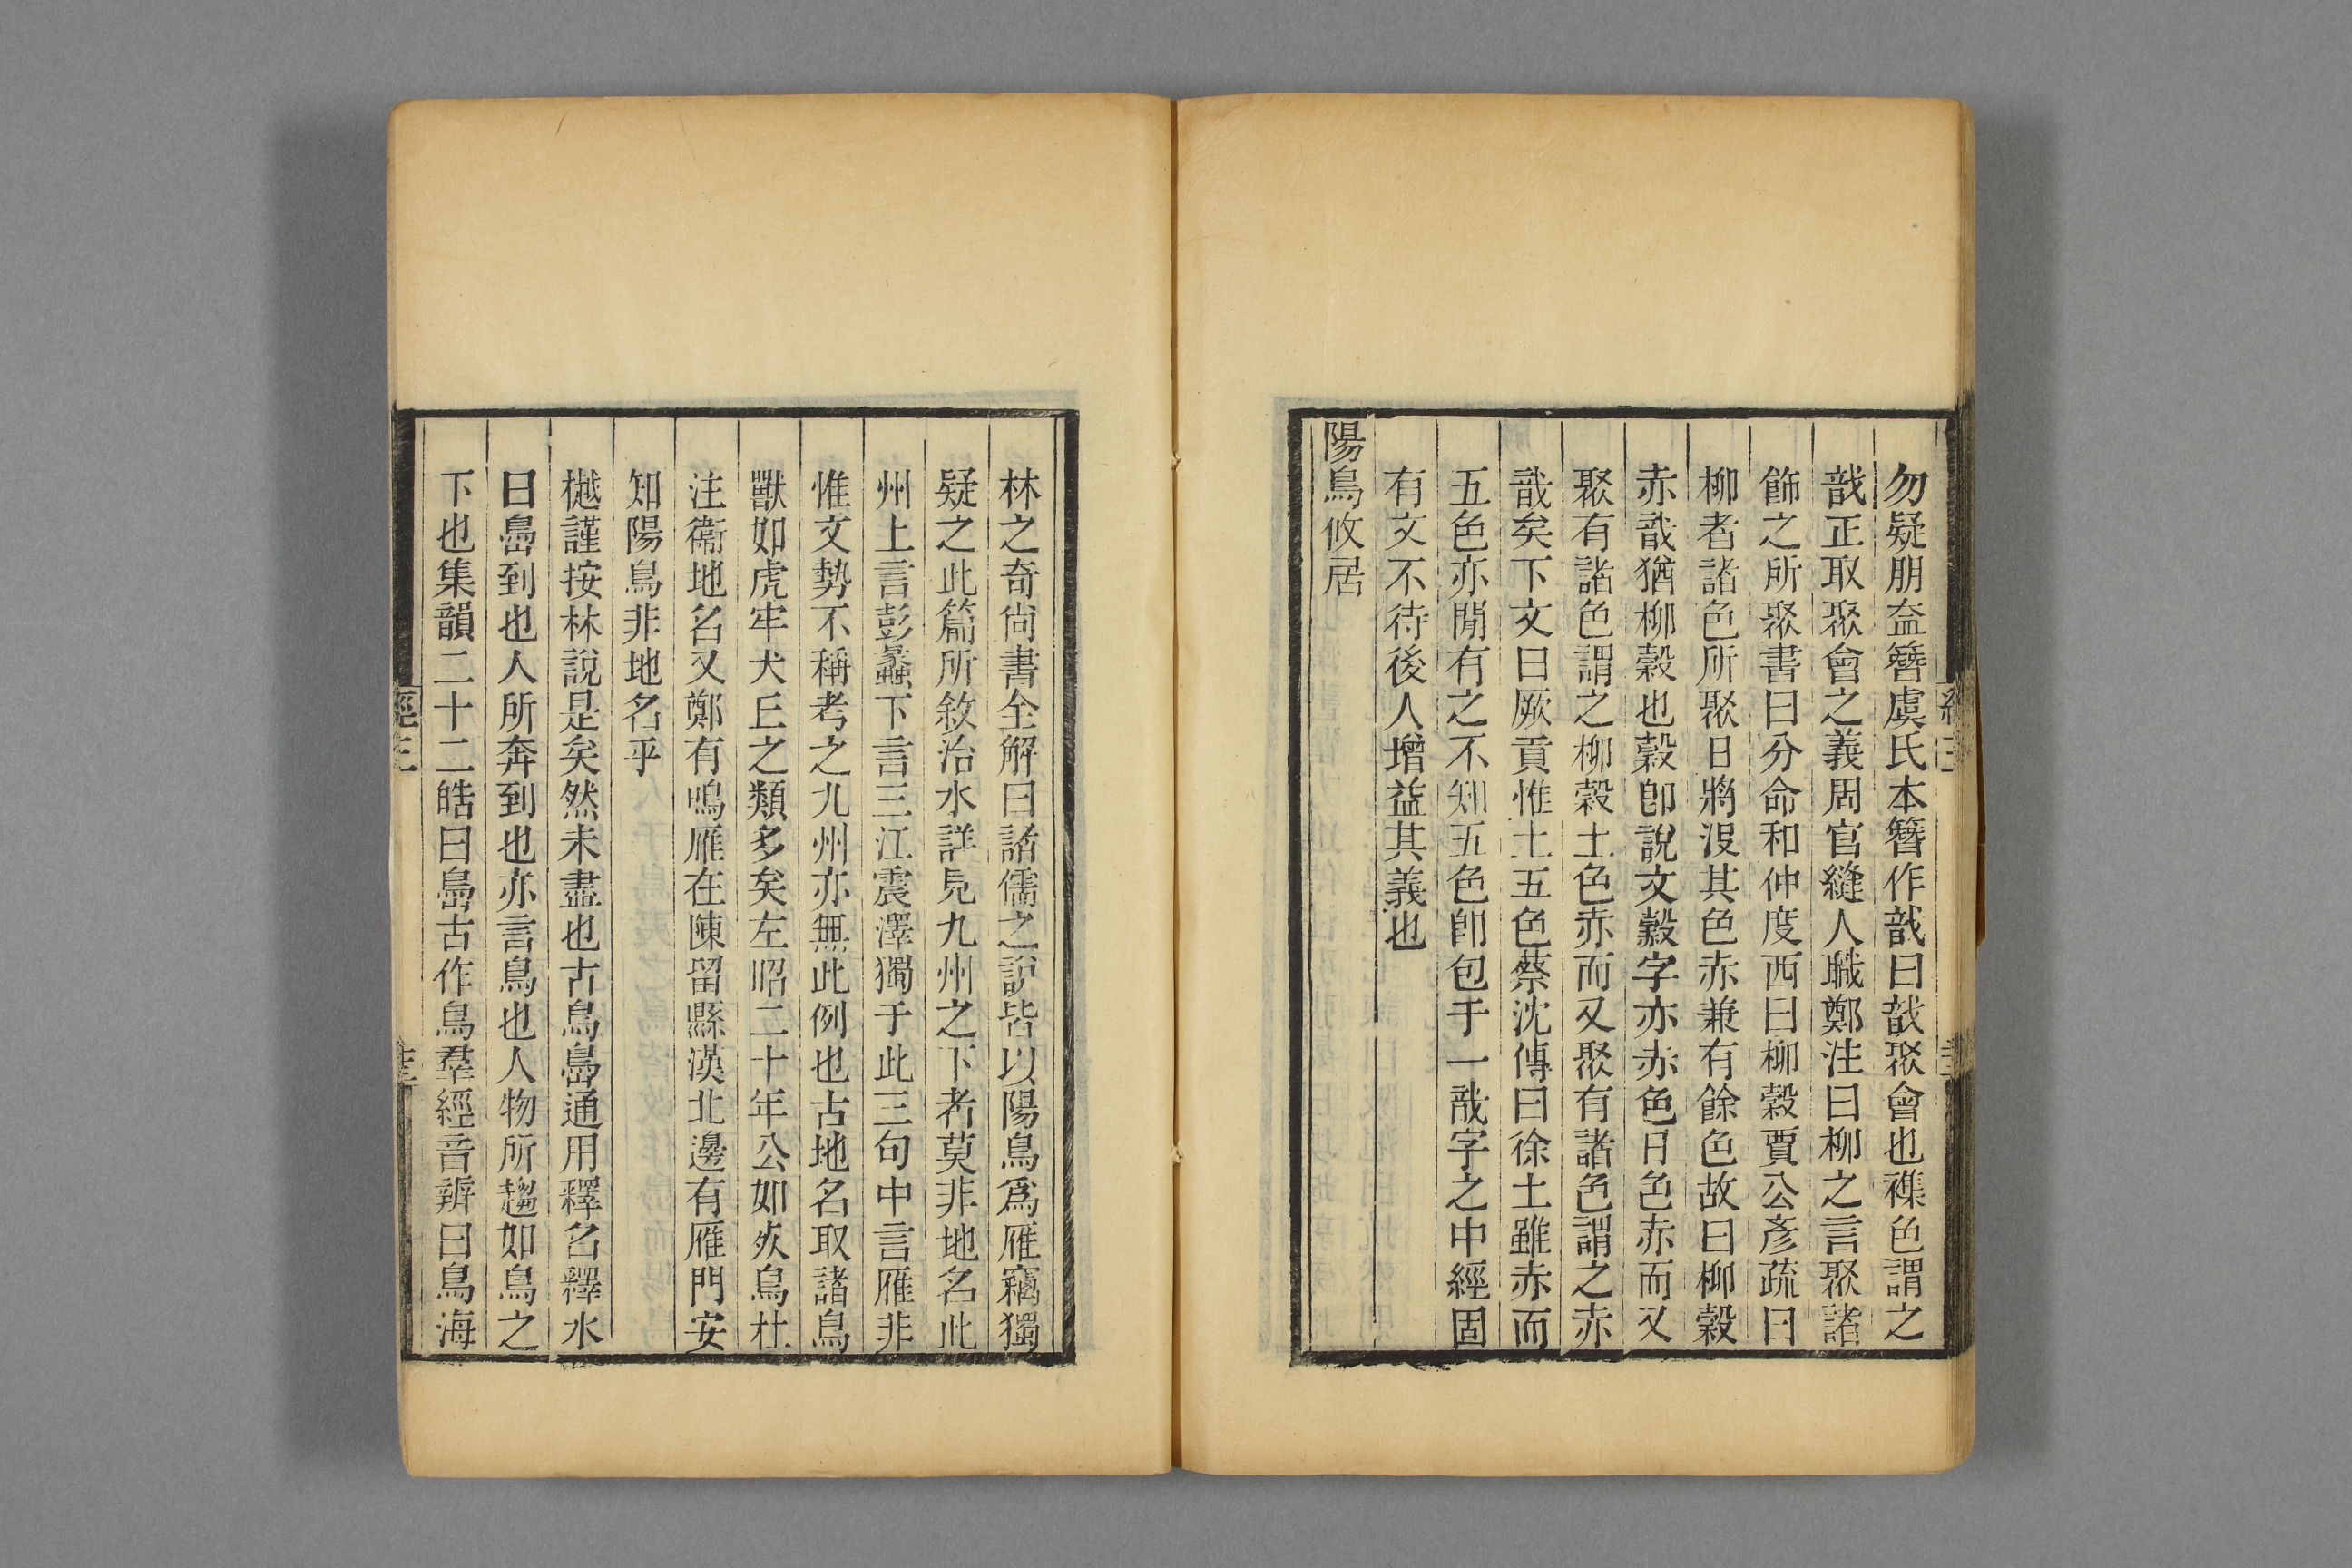 勿疑朋盍簪虞氏本簪作戠曰戠聚會也襍色謂之
戠正取聚會之義周官縫人職鄭注曰柳之言聚諸
飾之所聚書曰分命和仲度西曰柳穀賈公彥疏曰
柳者諸色所聚日將沒其色赤兼有餘色故曰柳穀
赤戠猶柳穀也穀卽說文糓字亦赤色日色赤而又
聚有諸色謂之柳穀土色赤而又聚有諸色謂之赤
戠矣下文曰厥貢惟土五色蔡沈傳曰徐土雖赤而
五色亦閒有之不知五色卽包于一戠字之中經固
有文不待後人增益其義也
陽鳥攸居
林之奇尙書全解曰諸儒之說皆以陽鳥爲雁竊獨
疑之此篇所敘治水詳見九州之下者莫非地名此
州上言彭蠡下言三江震澤獨于此三句中言雁非
惟文勢不稱考之九州亦無此例也古地名取諸鳥
獸如虎牢犬𠀉之類多矣左昭二十年公如死鳥杜
注衞地名又鄭有鳴雁在陳留縣漢北邊有雁門安
知陽鳥非地名乎
樾謹按林說是矣然未盡也古鳥㠀通用釋名釋水
曰㠀到也人所奔到也亦言鳥也人物所趨如鳥之
下也集韻二十二皓曰㠀古作鳥羣經音辨曰鳥海
經三